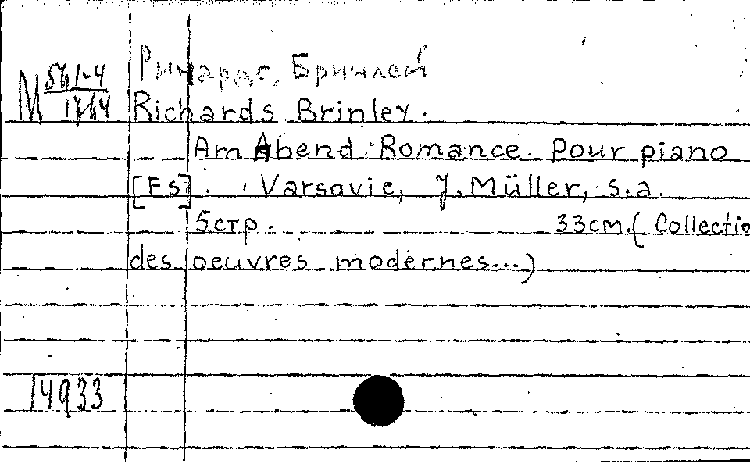 М 561-4
1764
Ричардс, Бринлей
Richards Brinley.
Am Abend Romance. Pour piano
[Es]. Varsovie, J. Müller, s.a.
5 стр. 33 см. ( Collectio
des oeuvres modernes...)
14933